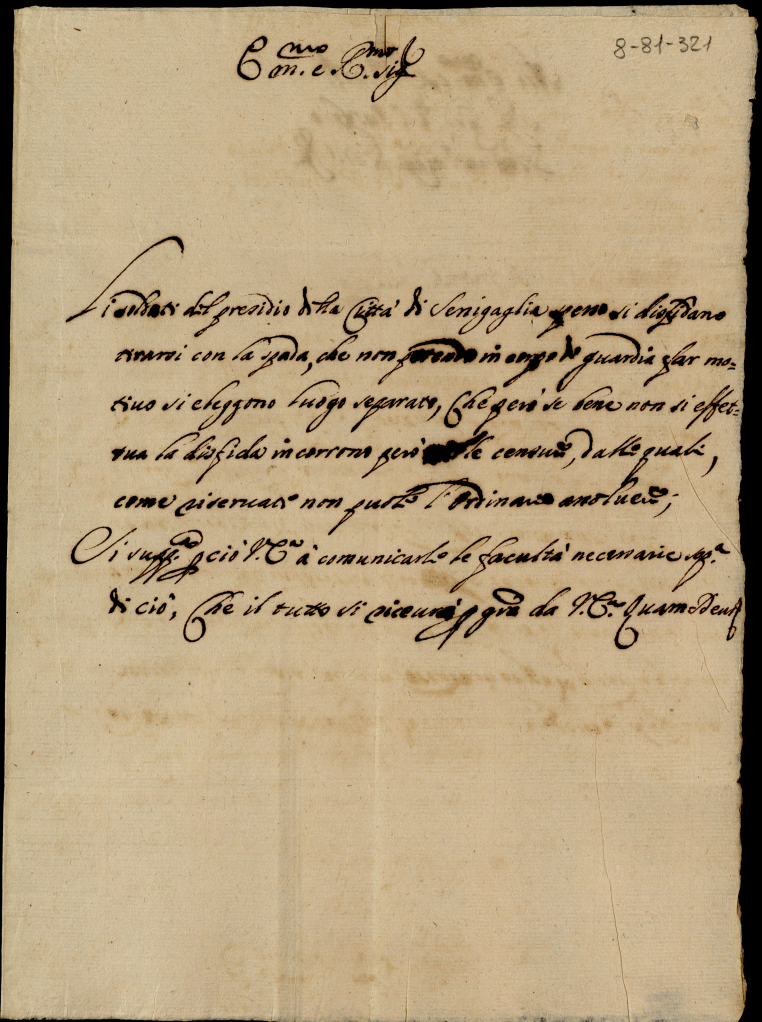 8-81-321
E.mo e R.mo Sig.
Li soldati del presidio della Città di Senigaglia spesso si disfidano
tirarsi con la spada, che non potendo in corpo di guardia far mo=
tivo si eleggono luogo separato, Che però se bene non si effet=
tua la disfida incorrono però le censure, dalle quali,
come riservate non puole l'Ordinario assolvere;
Si supp.ca p ciò V.E. à comunicarle le facultà necessarie sop.a
di ciò, Che il tutto si riceverà p gra da V.E. Quam Deus